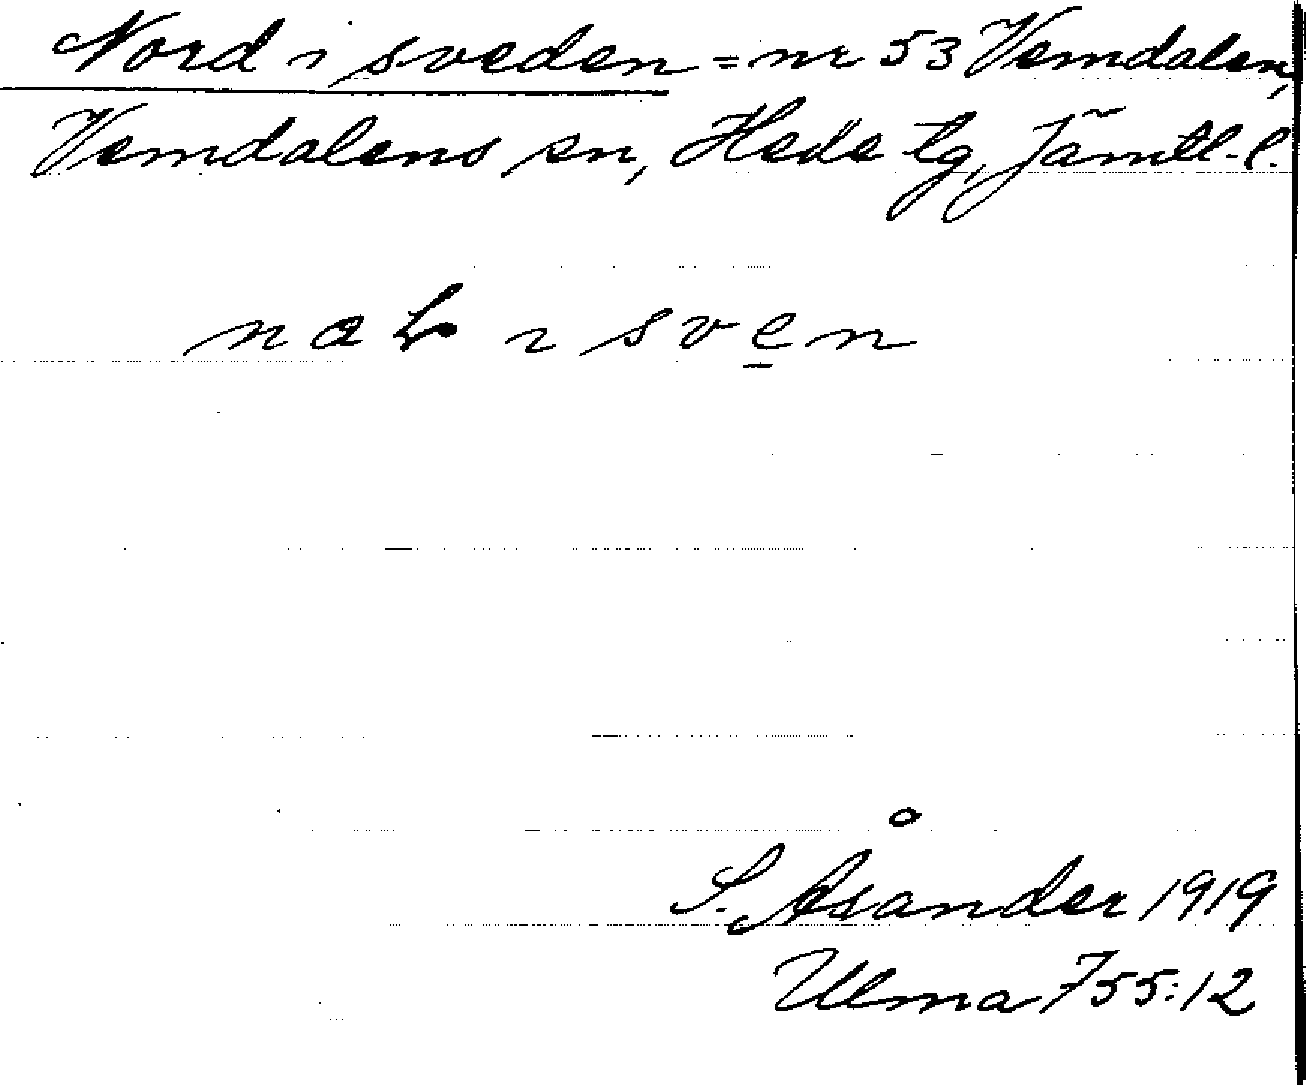 Nord i sveden = nr 53 Vemdalen,
Vemdalens sn, Hede tg, Jämtl. l.
S. Åsander 1919
Ulma 755:12